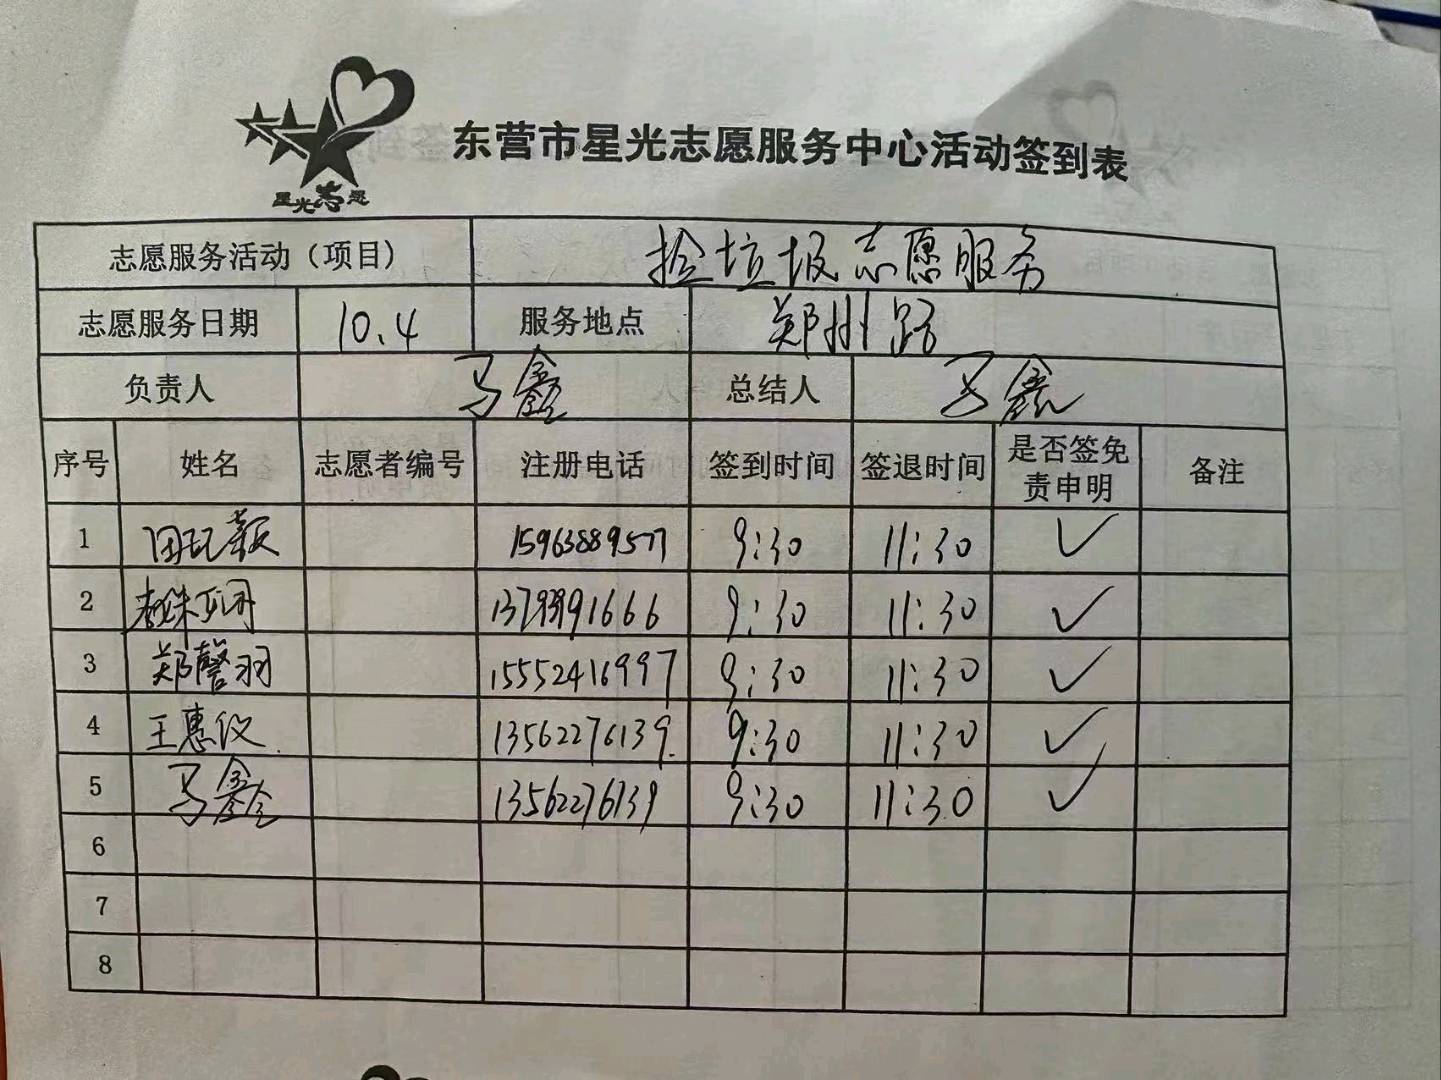 星光志愿
东营市星光志愿服务中心活动签到表
志愿服务活动（项目） 捡垃圾志愿服务
志愿服务日期 10.4 服务地点 郑州路
负责人 马鑫 总结人 马鑫
序号 姓名 志愿者编号 注册电话 签到时间 签退时间 是否签免责申明 备注
1 15963889577 9:30 11:30 ✓
2 13793991666 9:30 11:30 ✓
3 郑馨羽 15552416997 9:30 11:30 ✓
4 王惠仪 13562276139 9:30 11:30 ✓
5 马鑫 13562276139 9:30 11:30 ✓
6
7
8